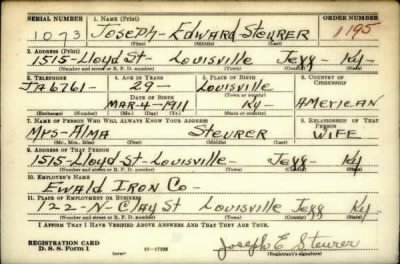 SERIAL NUMBER 1. NAME (Print) ORDER NUMBER
1073 JOSEPH - EDWARD STEURER 1195
(First) (Middle) (Last)
2. ADDRESS (Print)
1515-Lloyd St- Louisville Jeff- Ky-
(Number and street or R. F. D. number) (Town) (County) (State)
3. TELEPHONE 4. AGE IN YEARS 5. PLACE OF BIRTH 6. COUNTRY OF CITIZENSHIP
JA6761- 29- Louisville
DATE OF BIRTH (Town or county)
MAR-4-1911 Ky- AMERICAN
(Exchange) (Number) (Mo.) (Day) (Yr.) (State or country)
7. NAME OF PERSON WHO WILL ALWAYS KNOW YOUR ADDRESS 8. RELATIONSHIP OF THAT PERSON
MRS-Alma STEURER WIFE
(Mr., Mrs., Miss) (First) (Middle) (Last)
9. ADDRESS OF THAT PERSON
1515-Lloyd St- Louisville- Jeff- Ky
(Number and street or R. F. D. number) (Town) (County) (State)
10. EMPLOYER'S NAME
Ewald Iron Co-
11. PLACE OF EMPLOYMENT OR BUSINESS
122-N-Clay St Louisville Jeff Ky-
(Number and street or R. F. D. number) (Town) (County) (State)
I AFFIRM THAT I HAVE VERIFIED ABOVE ANSWERS AND THAT THEY ARE TRUE.
REGISTRATION CARD
D. S. S. Form 1
Joseph E Steurer
(Registrant's signature)